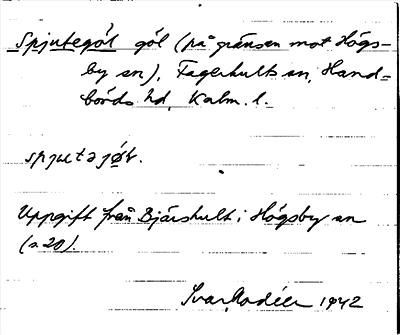 Spjutegöl göl (på gränsen mot Högs-
by sn), Fagerhults sn, Hand-
börds hd, Kalm. l.
spjutəjø̄l.
Uppgift från Bjärshult i Högsby sn
(a 20).
Ivar Modéer 1942